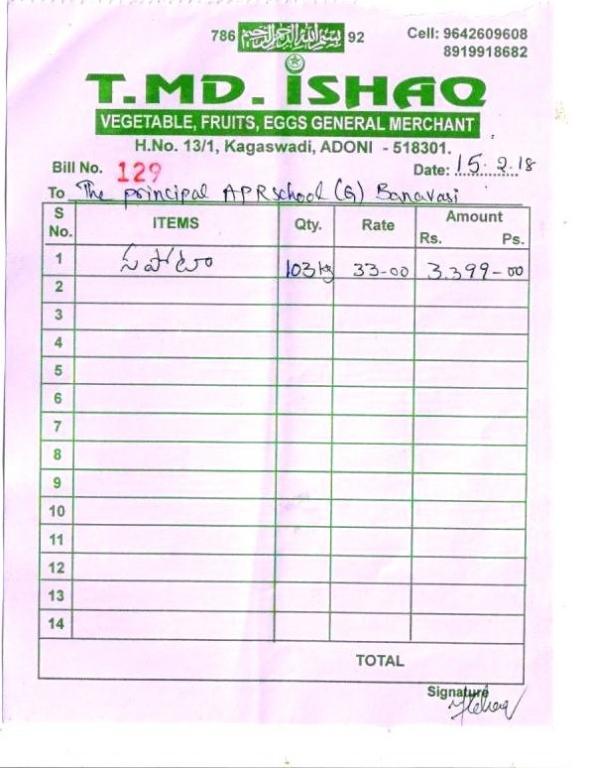 786 بسم الله الرحمن الرحيم 92 Cell: 9642609608
8919918682
T.MD. ISHAQ
VEGETABLE, FRUITS, EGGS GENERAL MERCHANT
H.No. 13/1, Kagaswadi, ADONI - 518301.
Bill No. 129 Date: 15.2.18
To The principal APRschool (G) Banavasi
S No. ITEMS Qty. Rate Amount
Rs. Ps.
1 సపోటా 103 kg 33-00 3.399-00
2
3
4
5
6
7
8
9
10
11
12
13
14
TOTAL
Signature